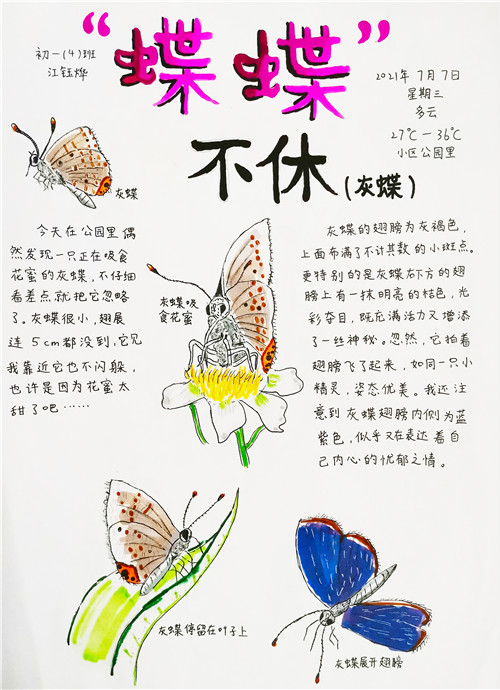 “蝶蝶”
不休(灰蝶)
初一(4)班
江钰烨
2021年7月7日
星期三
多云
27℃—36℃
小区公园里
灰蝶
今天在公园里偶
然发现一只正在吸食
花蜜的灰蝶,不仔细
看差点就把它忽略
了。灰蝶很小,翅展
连5cm都没到,它见
我靠近它也不闪躲,
也许是因为花蜜太
甜了吧……
灰蝶吸
食花蜜
灰蝶的翅膀为灰褐色,
上面布满了不计其数的小斑点。
更特别的是灰蝶右下方的翅
膀上有一抹明亮的桔色,光
彩夺目,既充满活力又增添
了一丝神秘。忽然,它拍着
翅膀飞了起来,如同一只小
精灵,姿态优美。我还注
意到灰蝶翅膀内侧为蓝
紫色,似乎又在表达着自
己内心的忧郁之情。
灰蝶停留在叶子上
灰蝶展开翅膀